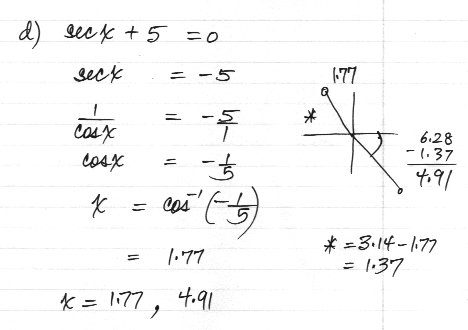 d) sec x + 5 = 0
sec x = -5
1/cos x = -5/1
cos x = -1/5
x = cos⁻¹(-1/5)
= 1.77
x = 1.77 , 4.91
1.77
*
6.28
- 1.37
4.91
* = 3.14 - 1.77
= 1.37